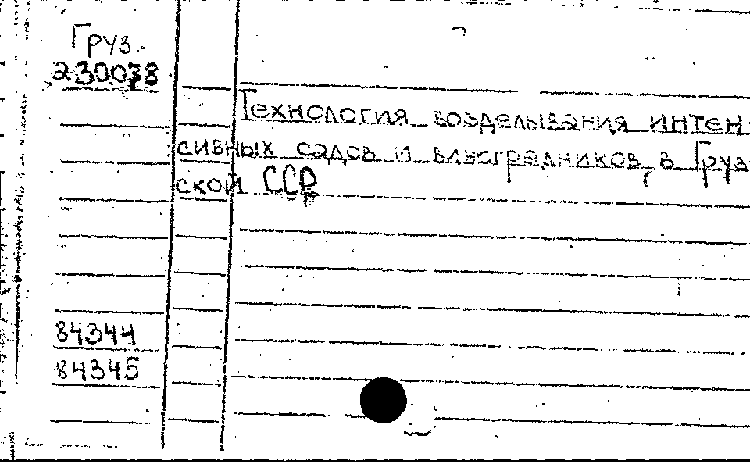 Груз.
230078
Технология возделывания интен
сивных садов и виноградников в Груз
ской ССР
84344
84345